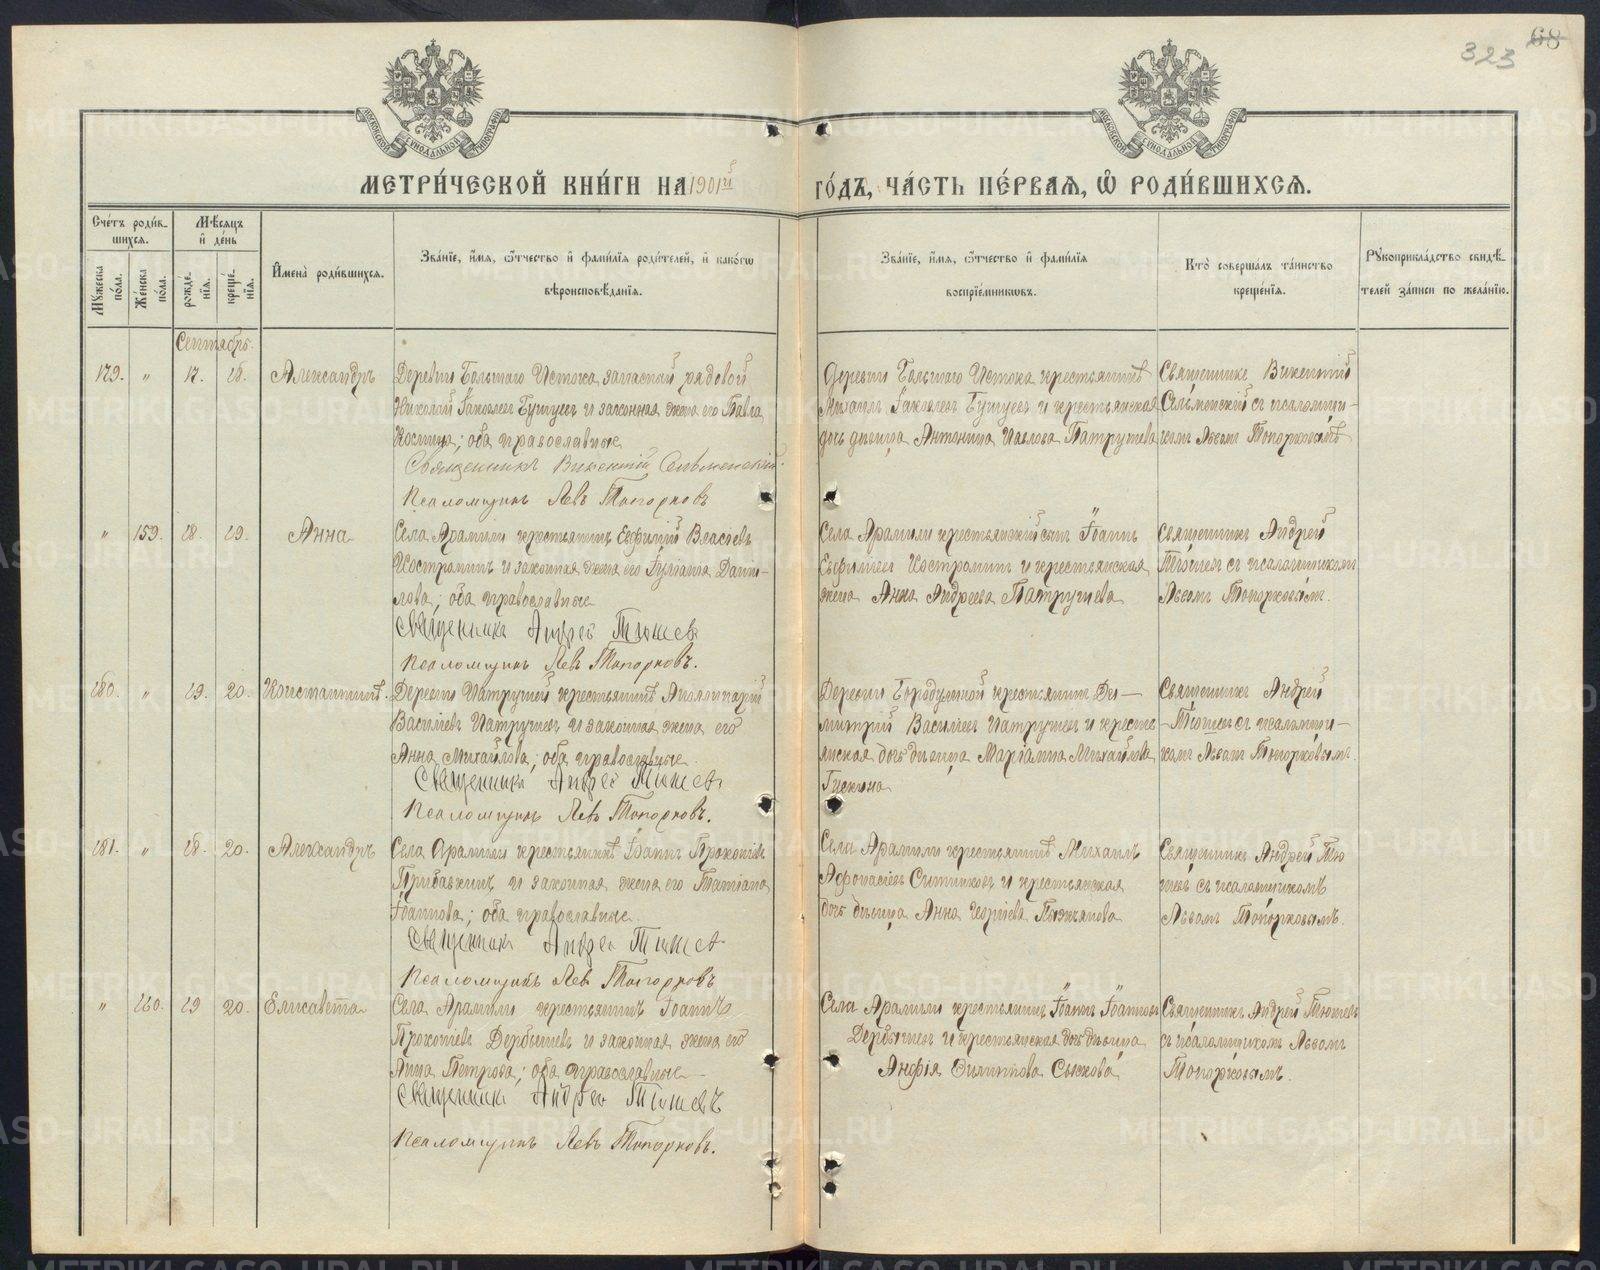 323
68
МОСКОВСКОЙ СѴНОДАЛЬНОЙ ТИПОГРАФІИ
МОСКОВСКОЙ СѴНОДАЛЬНОЙ ТИПОГРАФІИ
МЕТРИ́ЧЕСКОЙ КНИ́ГИ НА 1901й ГО́ДЪ, ЧА́СТЬ ПЕ́РВАЯ, Ѽ РОДИ́ВШИХСЯ.
Сче́тъ роди́в-
шихся.
Мѣ́сяцъ
и҆ де́нь
Мꙋ́жеска по́ла.
Же́нска по́ла.
рожде́-
нїя.
креще́-
нїя.
И҆мена̀ роди́вшихся.
Зва́нїе, и҆́мя, ѻ҆́тчество и҆ фами́лїя роди́телей, и҆ како́гѡ
вѣроисповѣ́данїя.
Зва́нїе, и҆́мя, ѻ҆́тчество и҆ фами́лїя
воспрїе́мникѡвъ.
Кто̀ соверша́лъ та́инство
креще́нїя.
Рꙋкоприкла́дство свидѣ́-
телей за́писи по жела́нїю.
Сентябрь.
179. " 17. 18. Александръ
Деревни Большаго Истока запасной рядовой
Николай Іаковлев Бушуев и законная жена его Павла
Космина; оба православные
Священникъ Викентій Сельменскій.
Псаломщикъ Левъ Топорковъ
Деревни Большаго Истока крестьянинъ
Михаилъ Іаковлев Бушуев и крестьянская
дочь девица Антонина Павлова Патрушева
Священник Викентій
Сельменскій с псаломщи-
ком Львом Топорковымъ
" 159. 18. 19. Анна
Села Арамили крестьянинъ Евфимій Власіевъ
Костромин и законная жена его Іуліана Дани-
лова; оба православные
Священникъ Андрей Тюшев
Псаломщикъ Левъ Топорковъ.
Села Арамили крестьянскій сын Іоаннъ
Евфиміев Костромин и крестьянская
жена Анна Андреева Патрушева
Священник Андрей
Тюшев с псаломщиком
Львом Топорковым.
180. " 19. 20. Константинъ.
Деревни Патрушей крестьянинъ Аполлинарій
Василіев Патрушев и законная жена его
Анна Михайлова; оба православные
Священникъ Андрей Тюшев
Псаломщикъ Левъ Топорковъ.
Деревни Бородулиной крестьянин Ди-
митрій Василіев Патрушев и кресть-
янская дочь девица Маріанна Михайлова
Священник Андрей
Тюшев с псаломщи-
ком Львом Топорковым.
181. " 18. 20. Александръ
Села Арамили крестьянинъ Іоаннъ Прокопіев
и законная жена его Татіана
Іоаннова; оба православные
Священникъ Андрей Тюшев
Псаломщикъ Левъ Топорковъ
Села Арамили крестьянинъ Михаилъ
Афонасіев Ситников и крестьянская
дочь девица Анна Георгіева
Священник Андрей Тю
шев с псаломщикомъ
Львом Топорковымъ.
" 160. 19 20. Елисавета
Села Арамили крестьянинъ Іоаннъ
Прокопіев Дербышев и законная жена его
Анна Петрова; оба православные
Священникъ Андрей Тюшевъ
Псаломщикъ Левъ Топорковъ.
Села Арамили крестьянинъ Іоанн Іоаннов
Дербышев и крестьянская дочь девица
Анфія Филиппова Сыскова
Священник Андрей Тюшевъ
с псаломщиком Львом
Топорковымъ.
METRIKI.GASO-URAL.RU